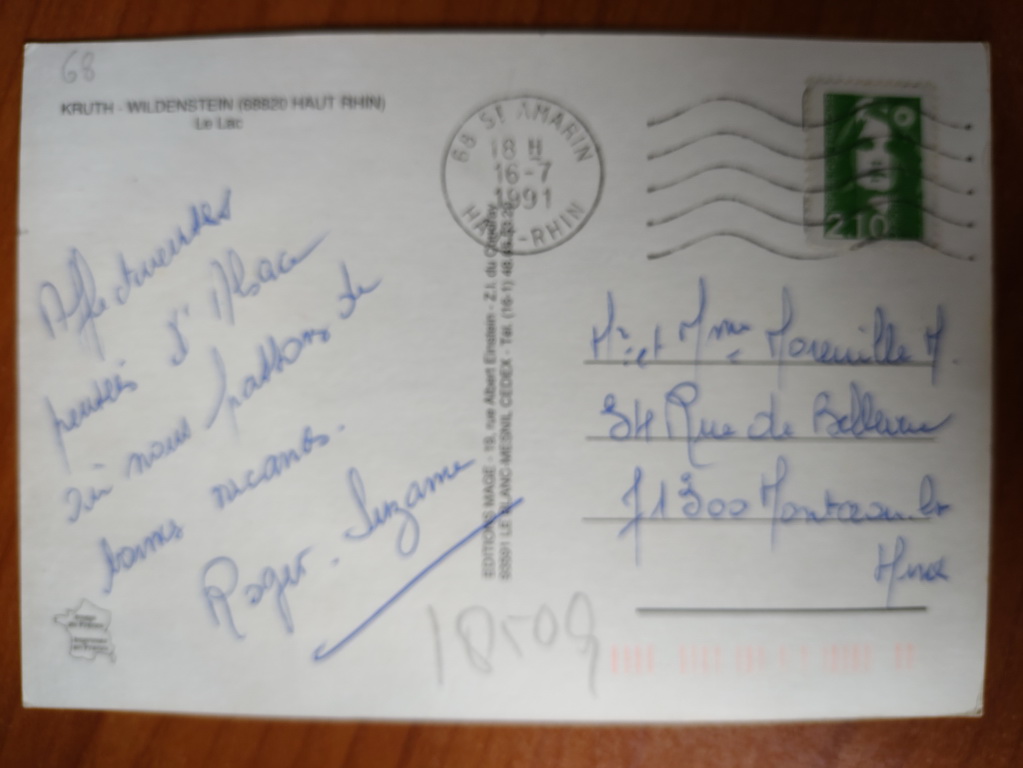 68
KRUTH - WILDENSTEIN (68820 HAUT RHIN)
Le Lac
68 ST AMARIN
18 H
16-7
1991
HAUT-RHIN
2,10
Affectueuses
pensées d'Alsace
où nous passons de
bonnes vacances.
Roger - Suzanne
EDITIONS MAGE - 19, rue Albert Einstein - Z.I. du
LE BLANC-MESNIL CEDEX - Tél. (16-1)
Mr et Mme M.
34 Rue de Bellevue
71300 Montceau les
Mines
18509